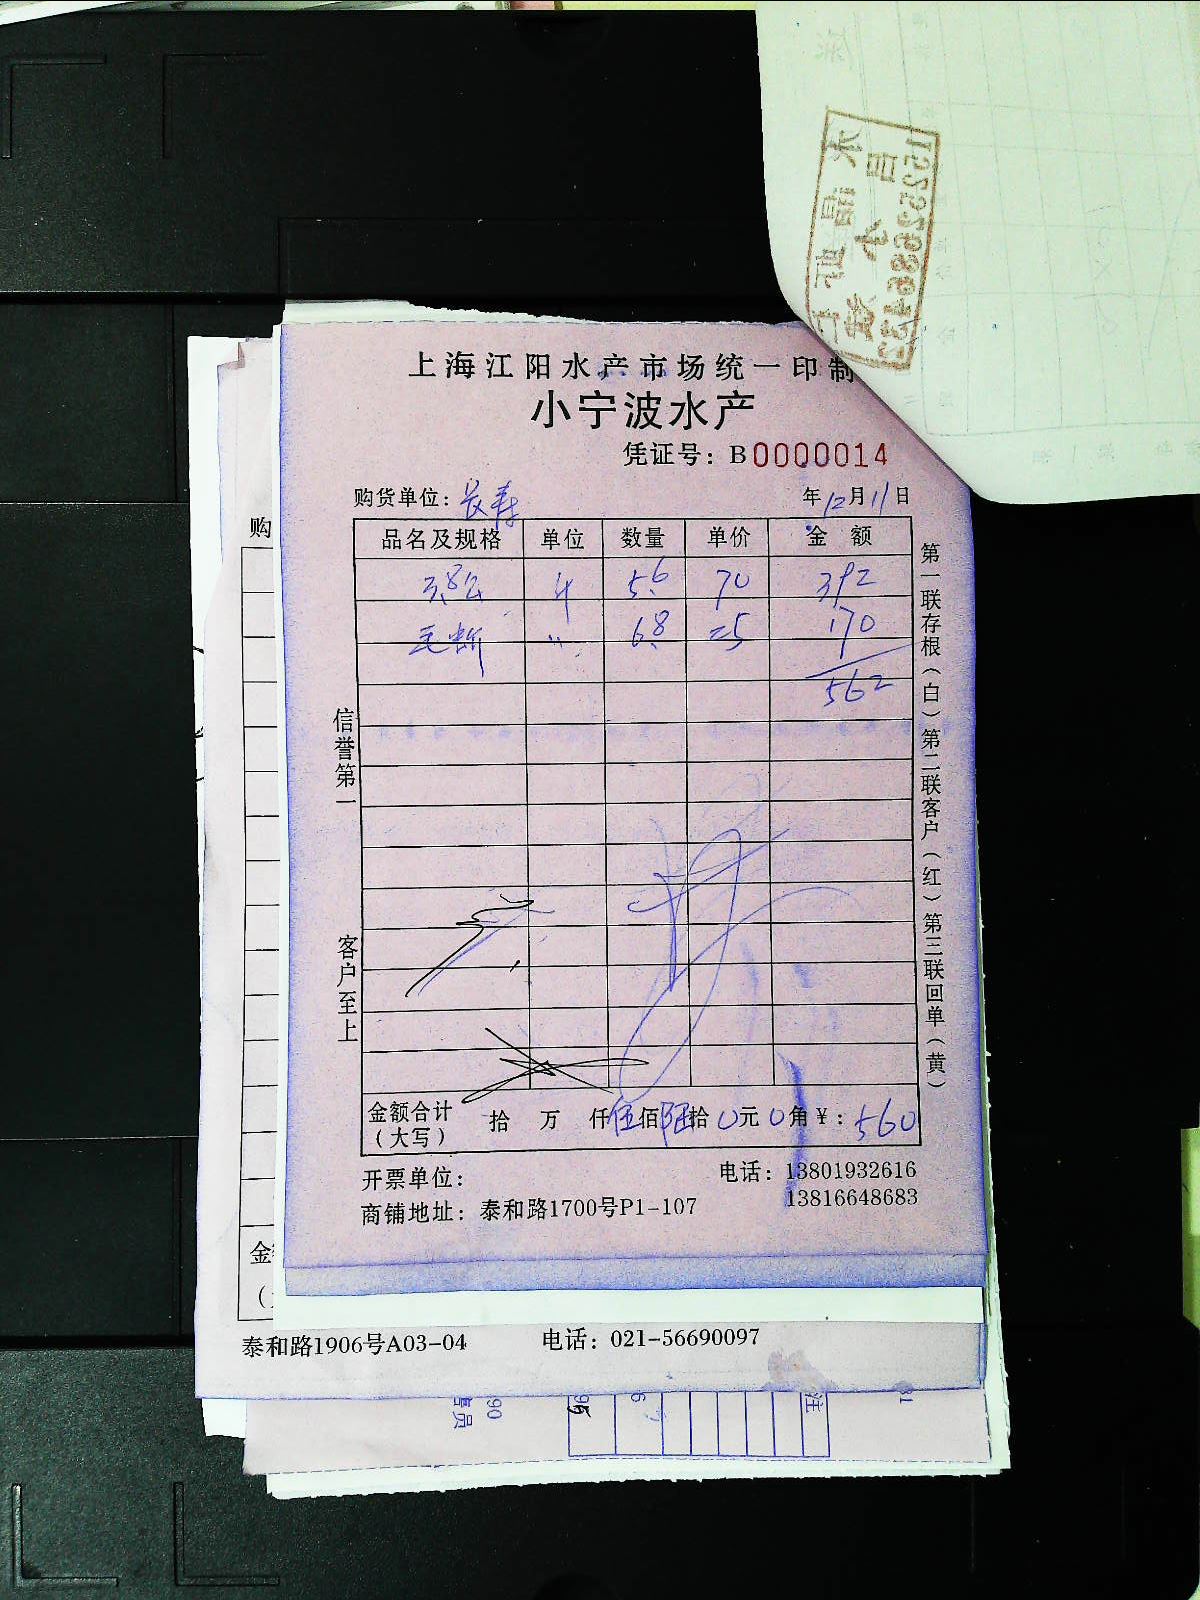 上海江阳水产市场统一印制
小宁波水产
凭证号：B0000014
购货单位：长寿 年12月11日
品名及规格 单位 数量 单价 金 额
3.8公 斤 5.6 70 392
〃 6.8 25 170
562
信誉第一
客户至上
第一联存根（白）第二联客户（红）第三联回单（黄）
金额合计（大写） 拾 万 仟伍佰陆拾0元0角￥：560
开票单位：
电话：13801932616
13816648683
商铺地址：泰和路1700号P1-107
购
金
泰和路1906号A03-04 电话：021-56690097